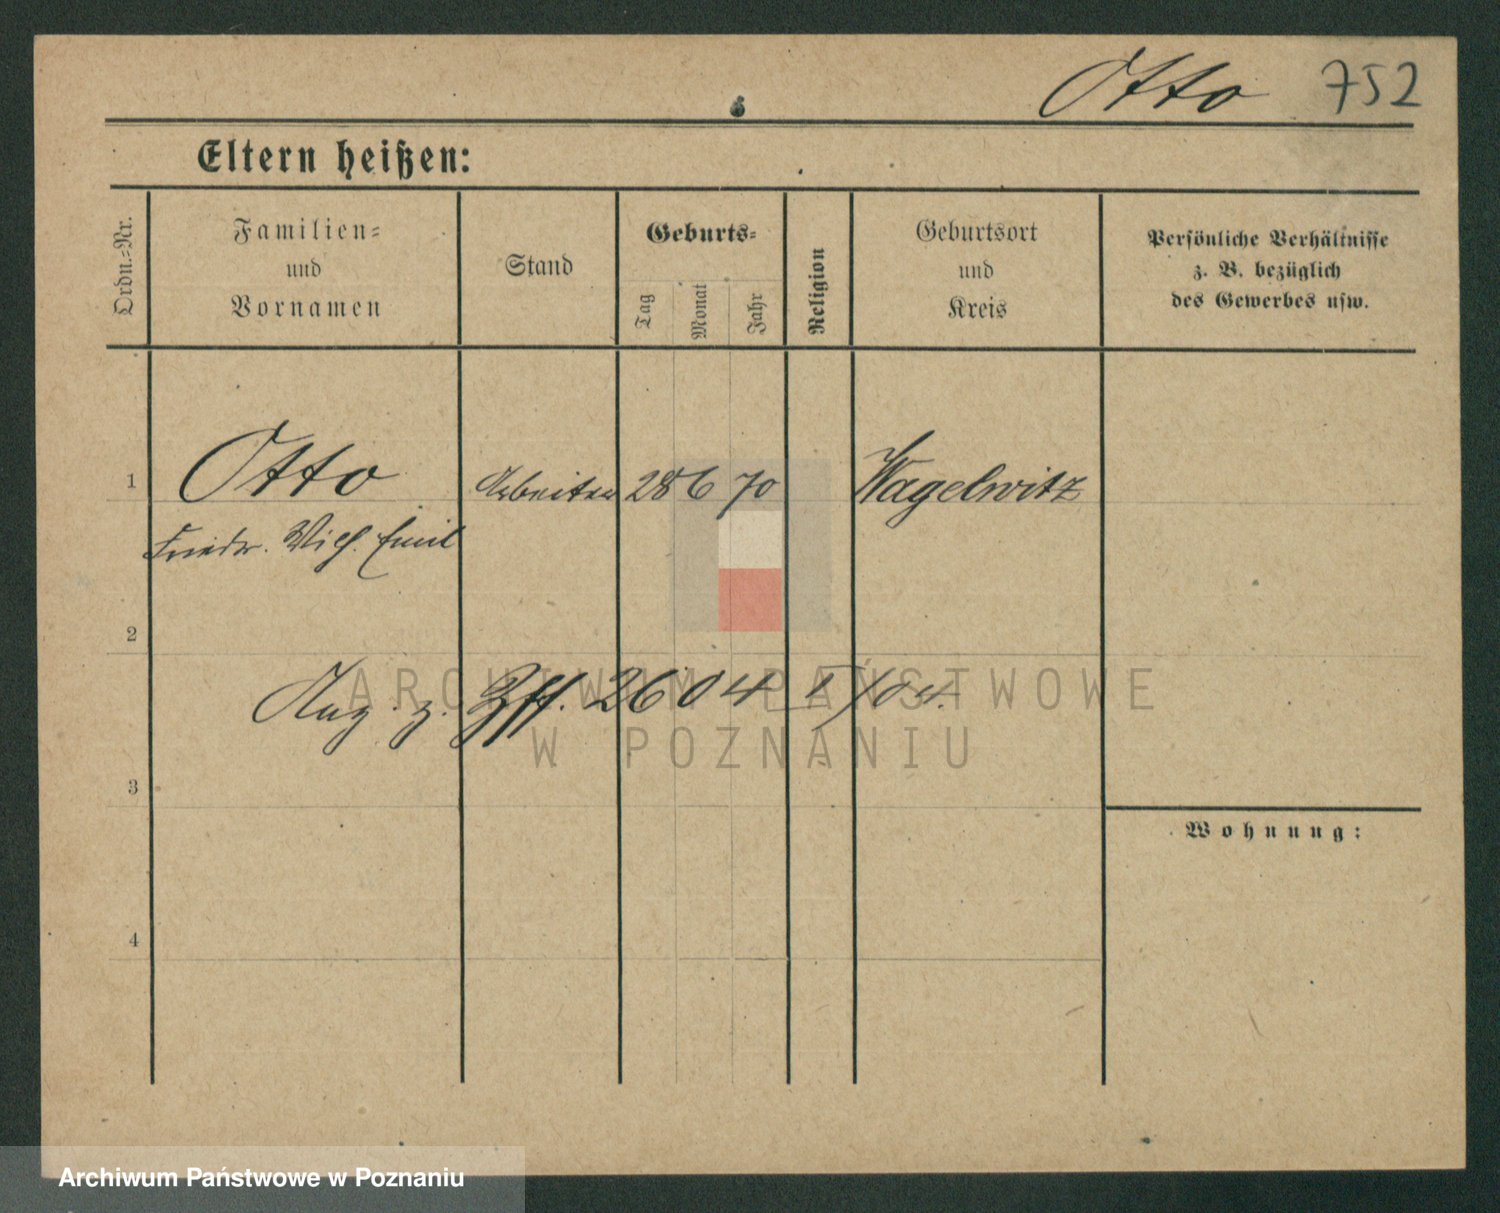 Otto 752
Eltern heißen:
Ordn.=Nr.
Familien=
und
Vornamen
Stand
Geburts=
Tag
Monat
Jahr
Religion
Geburtsort
und
Kreis
Persönliche Verhältnisse
z. B. bezüglich
des Gewerbes usw.
1 Otto Arbeiter 28 6 70 Wagelwitz
Friedr. Wilh. Emil
2
ARCHIWUM PAŃSTWOWE
W POZNANIU
Ang. z. 26 04
3
Wohnung:
4
Archiwum Państwowe w Poznaniu